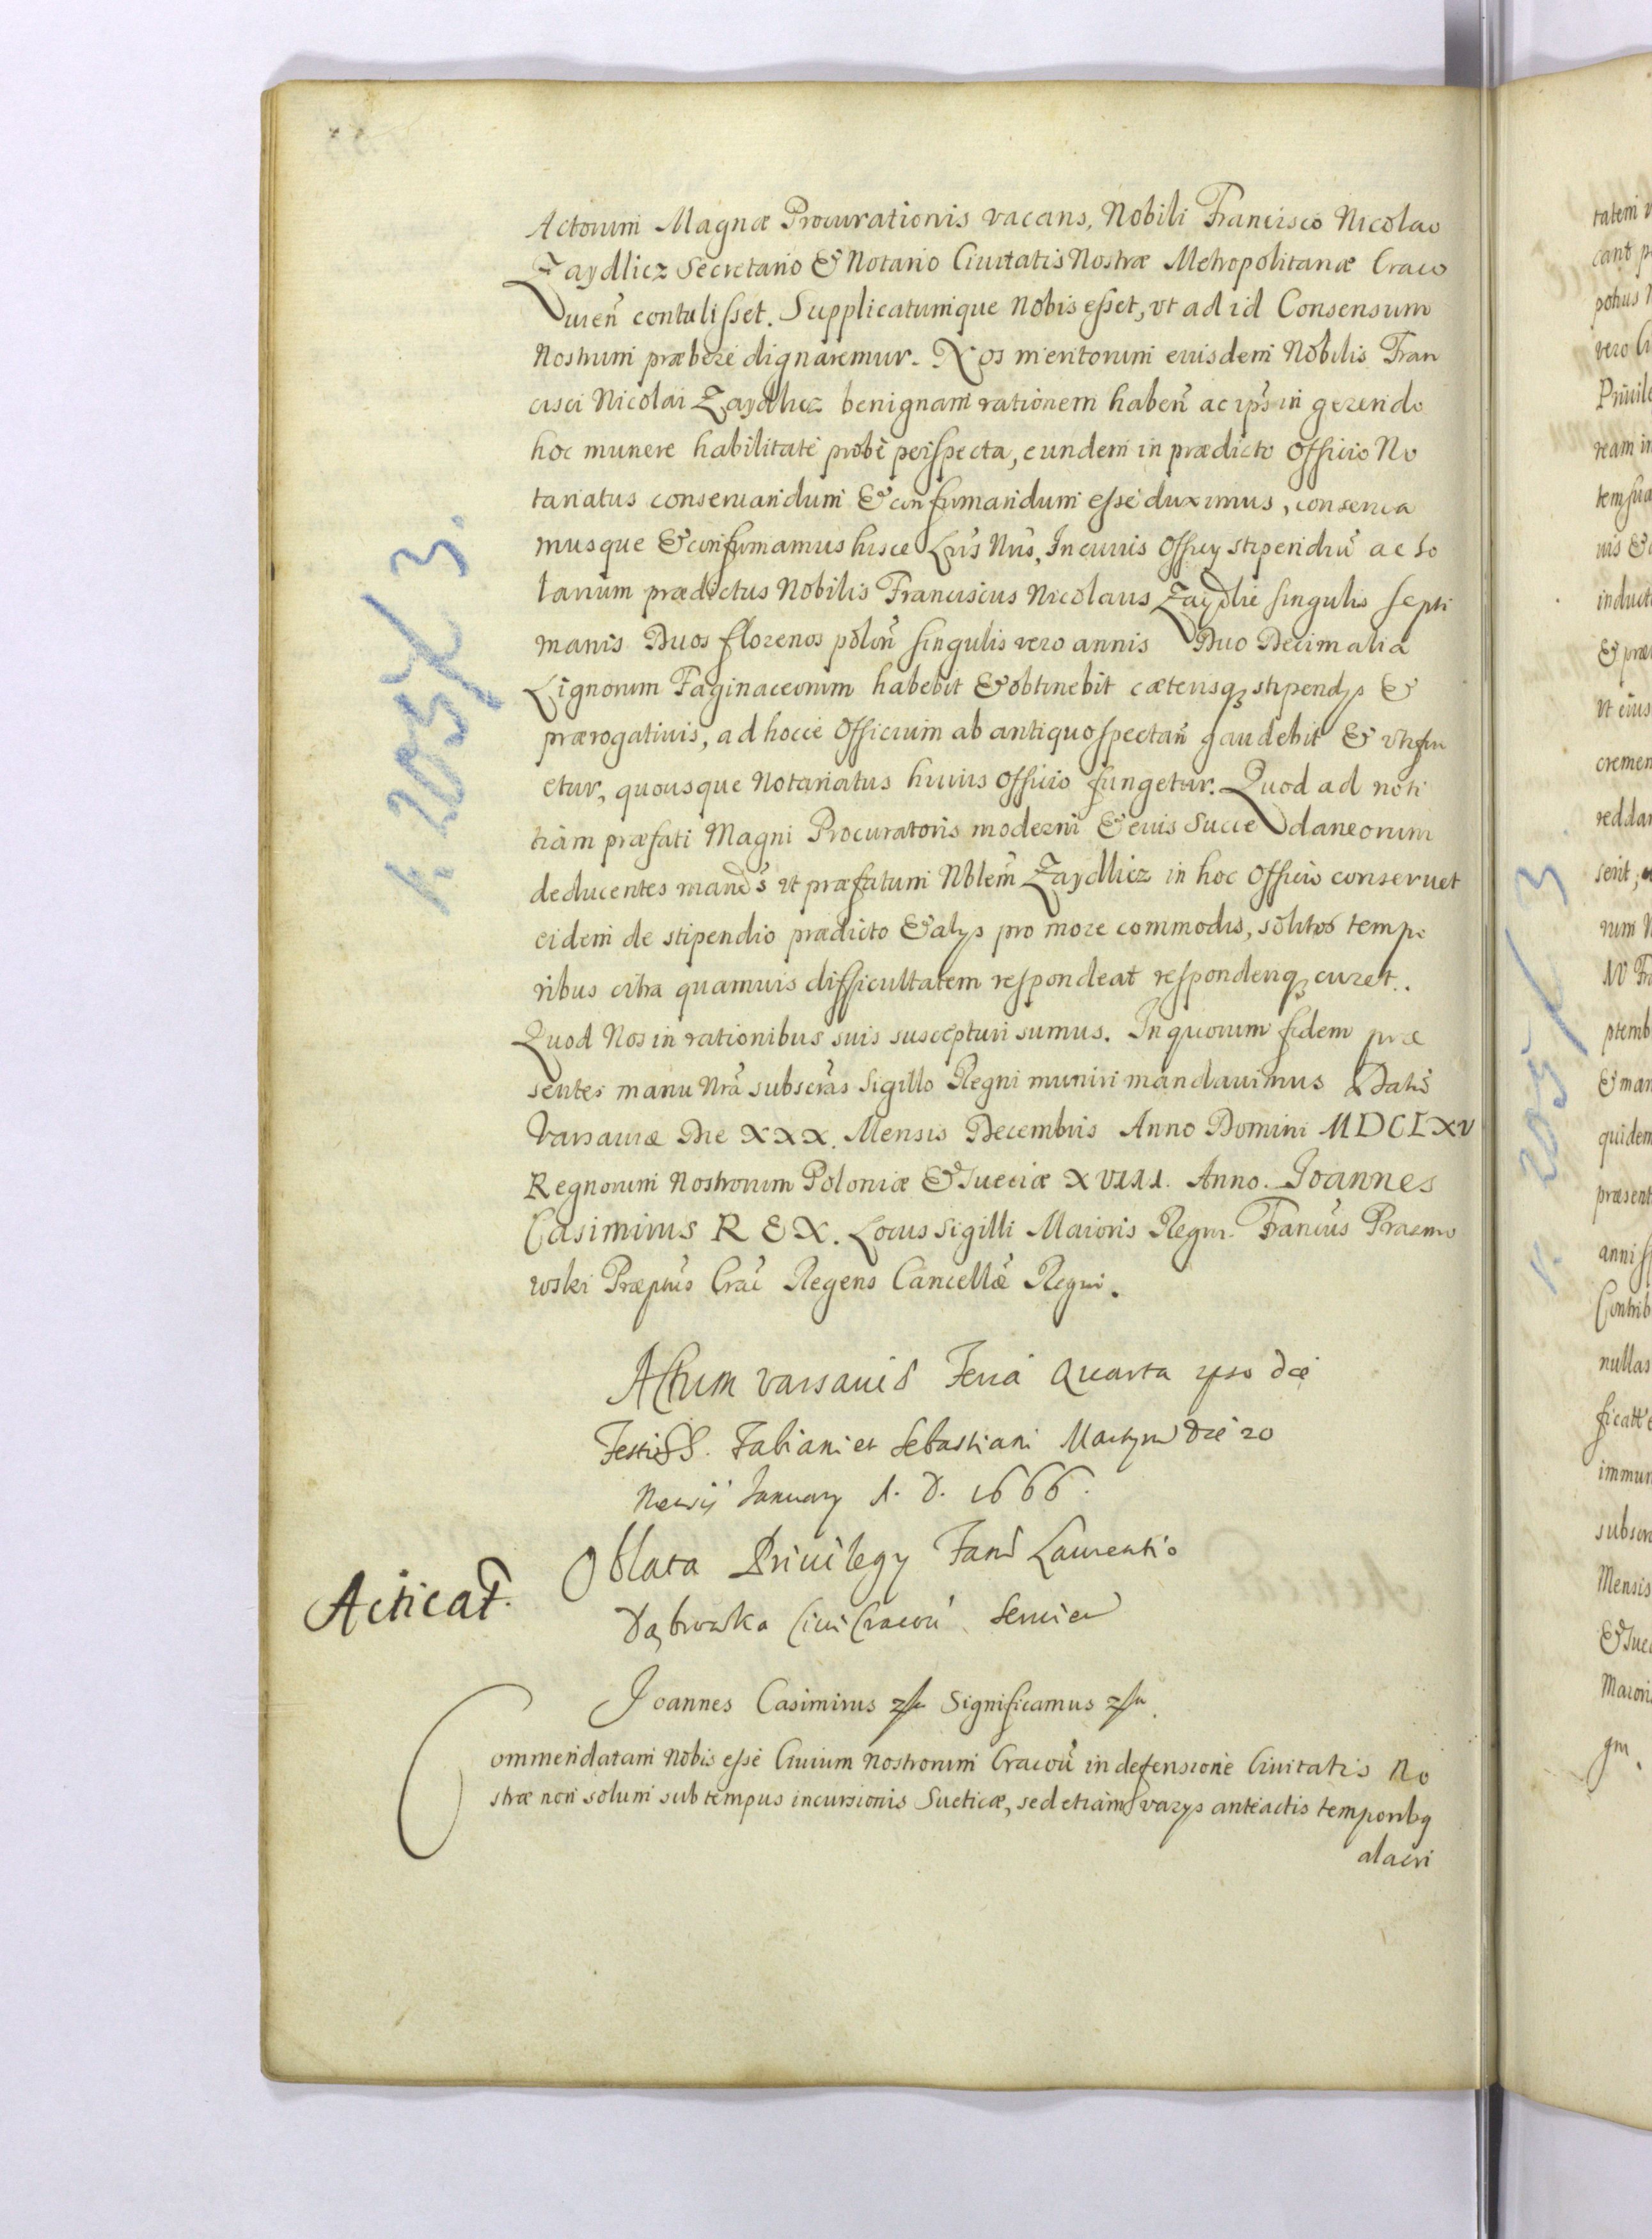 Actorum Magnæ Procurationis vacans, Nobili Francisco Nicolao
Zaydlicz Secretario & Notario Ciuitatis Nostræ Metropolitanæ Craco
uien̄ contulisset. Supplicatumque Nobis esset, vt ad id Consensum
Nostrum præbere dignaremur. Nos meritorum eiusdem Nobilis Fran
cisci Nicolai Zaydlicz benignam rationem haben̄ ac ips̄ in gerendo
hoc munere habilitate probè perspecta, eundem in prædicto Officio No
tariatus conseruandum & confirmandum esse duximus, conserua
musque & confirmamus hisce Lr̄is Nr̄is, In cuius Officy stipendiū ac so
larium prædictus Nobilis Franciscus Nicolaus Zaydlic singulis septi
manis Duos florenos polon̄ singulis vero annis Duo Decimalia
Lignorum Faginaceorum habebit & obtinebit cæterisqȝ stipendys &
prærogatiuis, ad hocce Officium ab antiquo spectan̄ gaudebit & vtifru
etur, quousque Notariatus huius Officio fungetur. Quod ad noti
tiam præfati Magni Procuratoris moderni & eius Succedaneorum
deducentes mand̄s vt præfatum Nblem̄ Zaydlicz in hoc Officio conseruet
eidem de stipendio prædicto & alys pro more commodis, solitos tempo
ribus citra quamuis difficultatem respondeat responderiqȝ curet.
Quod Nos in rationibus suis suscepturi sumus. In quorum fidem præ
sentes manu Nr̄a subscr̄as Sigillo Regni muniri mandauimus Datūs
Varsauiæ Die XXX. Mensis Decembris Anno Domini MDCLXV
Regnorum Nostrorum Poloniæ & Sueciæ XVIII. Anno. Joannes
Casimirus REX. Locus Sigilli Maioris Regni. Franc̄us Prazmo
wski Præptus Crac̄ Regens Cancellæ Regni.
Actum Varsauiæ Feria Quarta ipso die
Festi SS. Fabiani et Sebastiani Martyrū die 20
Mensis January A. D. 1666.
Acticat.
Oblata Priuilegy Fam̄ Laurentio
Dąbrowska Ciui Cracou̅ Seruien̄
Joannes Casimirus zsu Significamus zsu.
Commendatam Nobis esse Ciuium Nostrorum Cracou̅ in defensione Ciuitatis No
stræ non solum sub tempus incursionis Sueticæ, sed etiam varys anteactis temporibȝ
alacri
1. 205/3.